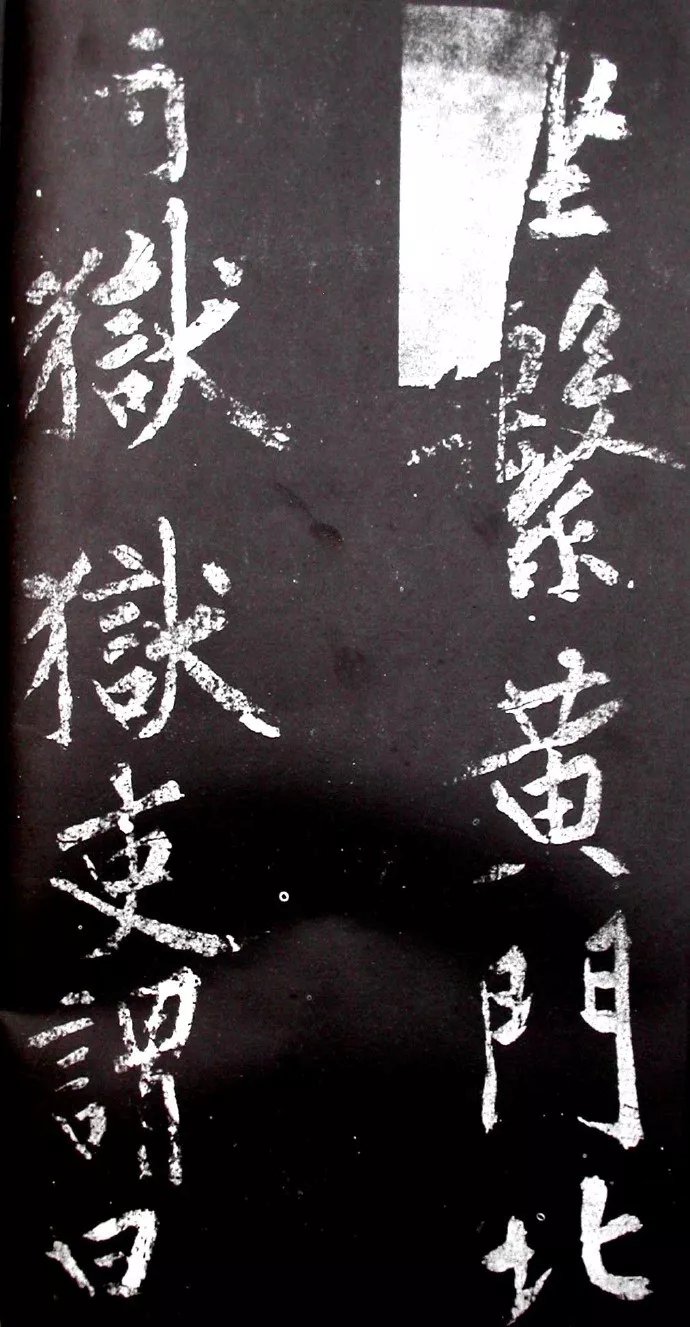 坐繫黃門北
獄獄吏謂曰